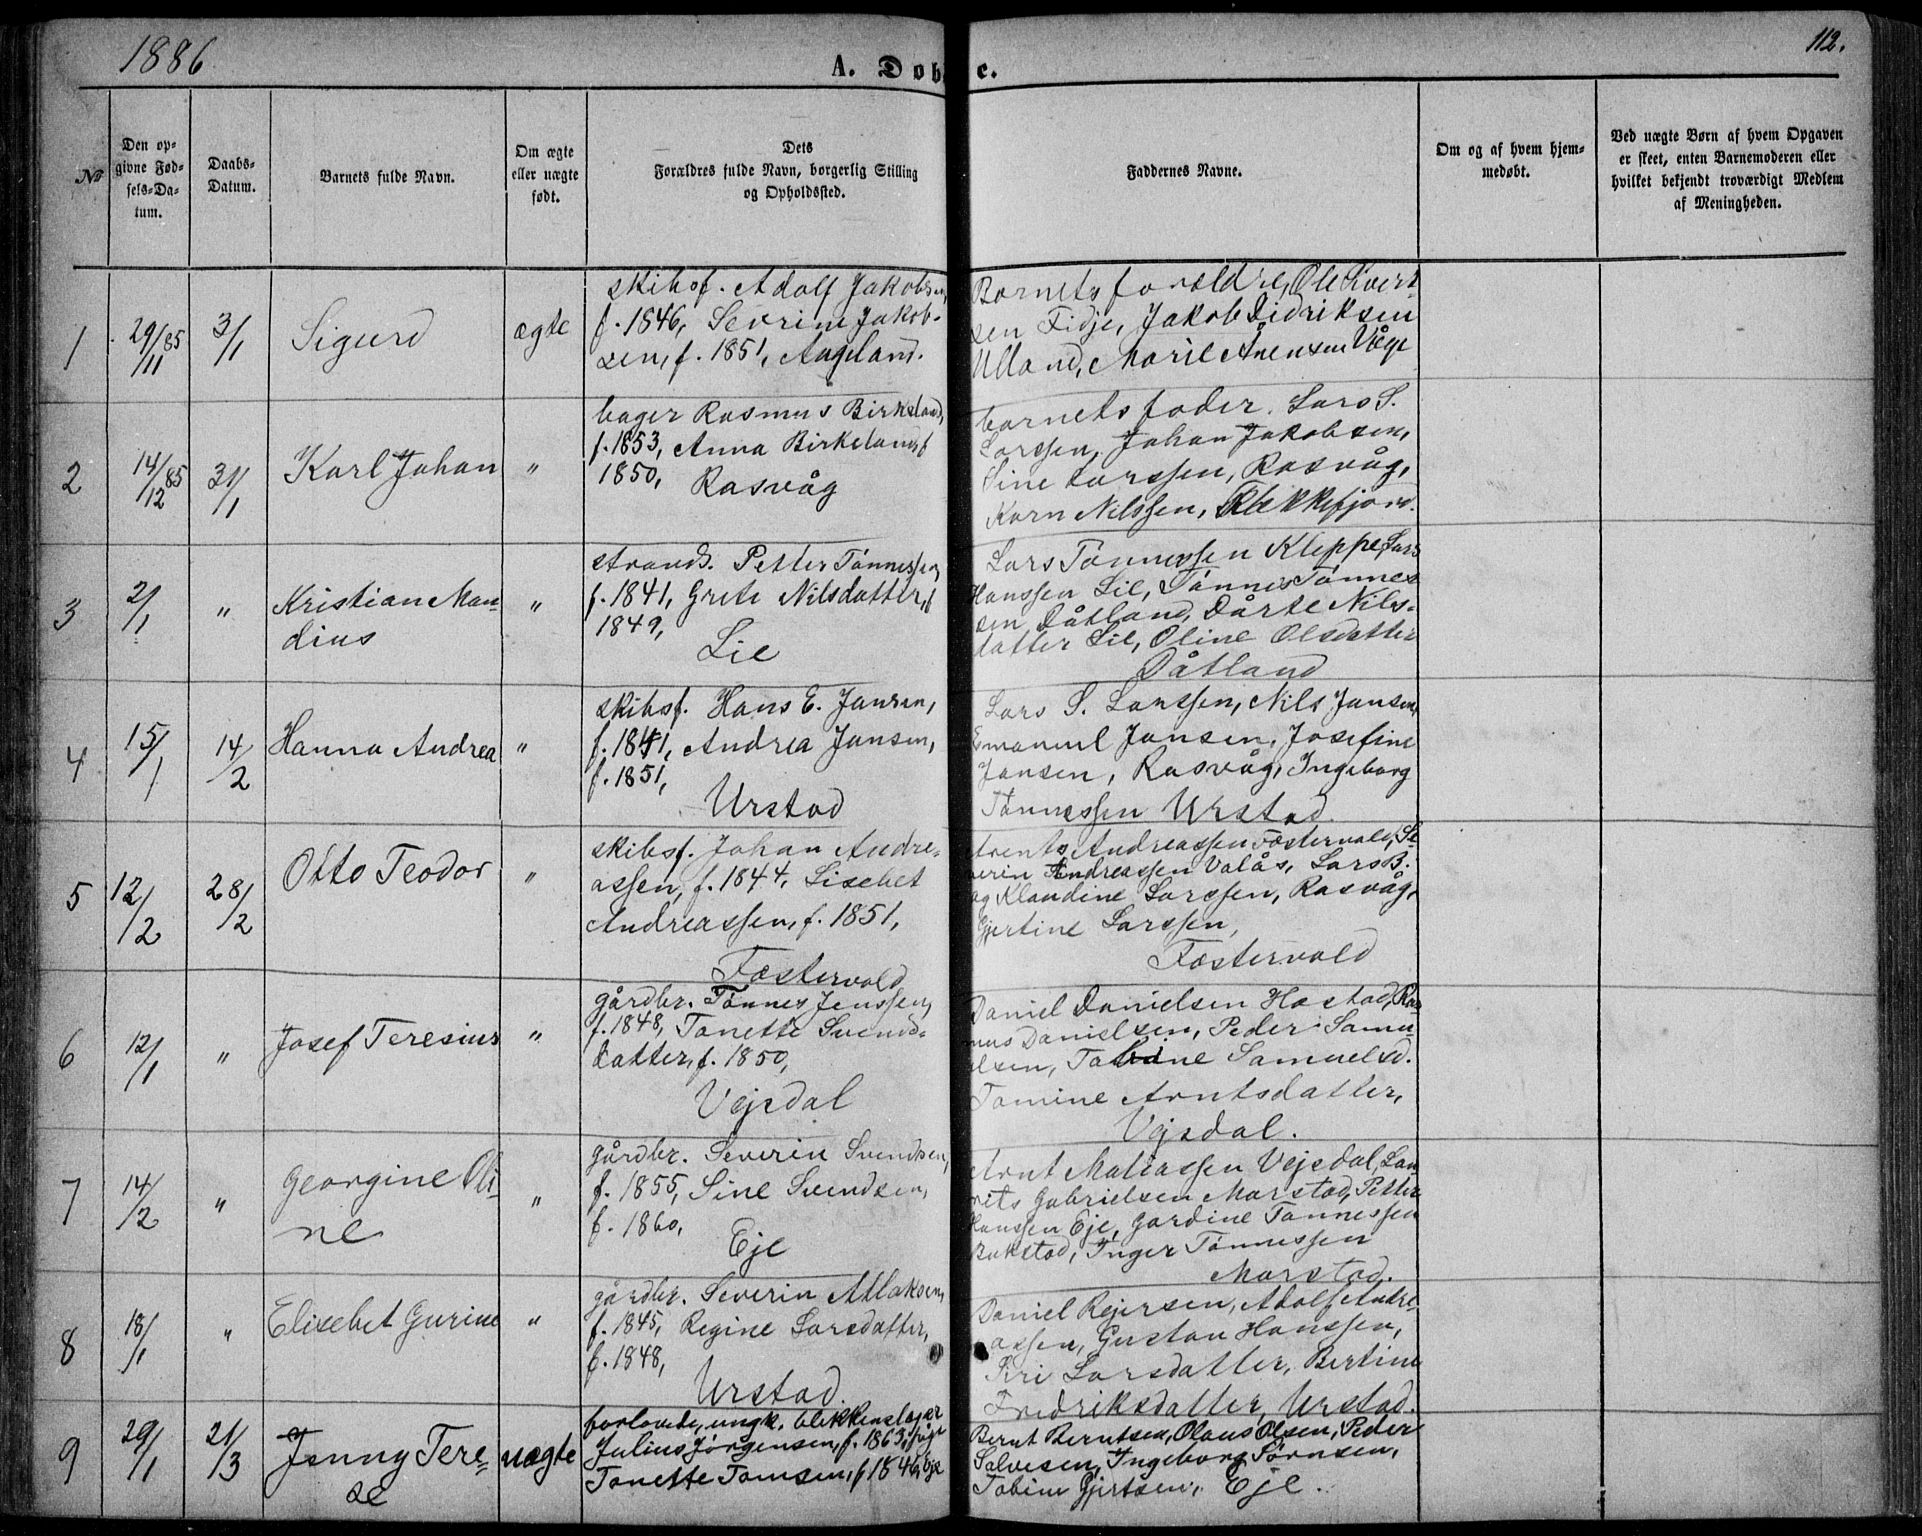 1886
112.
A. Døbte.
No
Den opgivne Fødsels-Datum.
Daabs-Datum.
Barnets fulde Navn.
Om ægte eller uægte født.
Dets Forældres fulde Navn, borgerlig Stilling og Opholdssted.
Faddernes Navne.
Om og af hvem hjemmedøbt.
Ved uægte Børn af hvem Opgaven er skeet, enten Barnemoderen eller hvilket bekjendt troværdigt Medlem af Menigheden.
1
29/11 85
3/1
Sigurd
ægte
skibsf. Adolf Jakobsen,
f. 1846, Sevrine Jakob-
sen, f. 1851, Augeland.
Barnets forældre, Ole Kvert-
sen Fidje, Jakob Didriksen
Ulland, Marie Anensen Våge
2
14/12 85
31/1
Karl Johan
"
bager Rasmus Birkeland,
f. 1853, Anna Birkeland, f
1850, Rasvåg
barnets fader, Lars S.
Larssen, Johan Jakobsen,
Sine Larssen, Rasvåg,
Karn Nilssen, Flekkefjord.
3
2/1
"
Kristian Man-
dius
"
strands. Petter Tønnessen
f. 1841, Grete Nilsdatter, f
1849,
Lie
Lars Tønnessen Kleppe, Lars
Hanssen Lie, Tønnes Tønnes-
sen Dåtland, Dårte Nils-
datter Lie, Oline Olsdatter
Dåtland
4
15/1
14/2
Hanna Andrea
"
skibsf. Hans E. Jansen,
f. 1841, Andrea Jansen,
f. 1851,
Urstad
Lars S. Larssen, Nils Jansen,
Emanuel Jansen, Josefine
Jansen, Rasvåg, Ingeborg
Tønnessen Urstad.
5
12/2
28/2
Otto Teodor
"
skibsf. Johan Andre-
assen, f. 1844, Lisebet
Andreassen, f. 1851,
Fæstervold
Arent Andreassen Fæstervold, Se-
verin Andreassen Valås, Lars B.
og Klaudine Larssen, Rasvåg,
Gjertine Larssen,
Fæstervold
6
12/1
"
Josef Teresius
"
gårdbr. Tønnes Jenssen,
f. 1848, Tonette Svends-
datter, f. 1850,
Vejsdal
Daniel Danielsen Hæstad, Ras-
mus Danielsen, Peder Samu-
elsen, Samuelsd.
Tomine Arntsdatter,
Vejsdal.
7
14/2
"
Georgine Oli-
ne
"
gårdbr. Severin Svendsen,
f. 1855, Sine Svendsen,
f. 1860,
Eje
Arnt Matiassen Vejsdal, Lau-
rits Gabrielsen Marstad, Petter
Hanssen Eje, Gardine Tønnessen
Rakstad, Inger Tønnessen
Marstad.
8
18/1
"
Elisebet Gurine
"
gårdbr. Severin Atlaksen,
f. 1845, Regine Larsdatter,
f. 1848,
Urstad.
Daniel Rejersen, Adolf Andre-
assen, Gustav Hanssen,
Siri Larsdatter, Bertine
Fredriksdatter, Urstad.
9
29/1
21/3
Jenny Tere-
se
uægte
forlovede, ungk. blikkenslager
Julius Jørgensen, f. 1863, pige
Tonette Tomsen, f 1846, Eje
Bernt Berntsen, Olaus Olsen, Peder
Salvesen, Ingeborg Tørnsen,
Tobine Gjertsen, Eje.